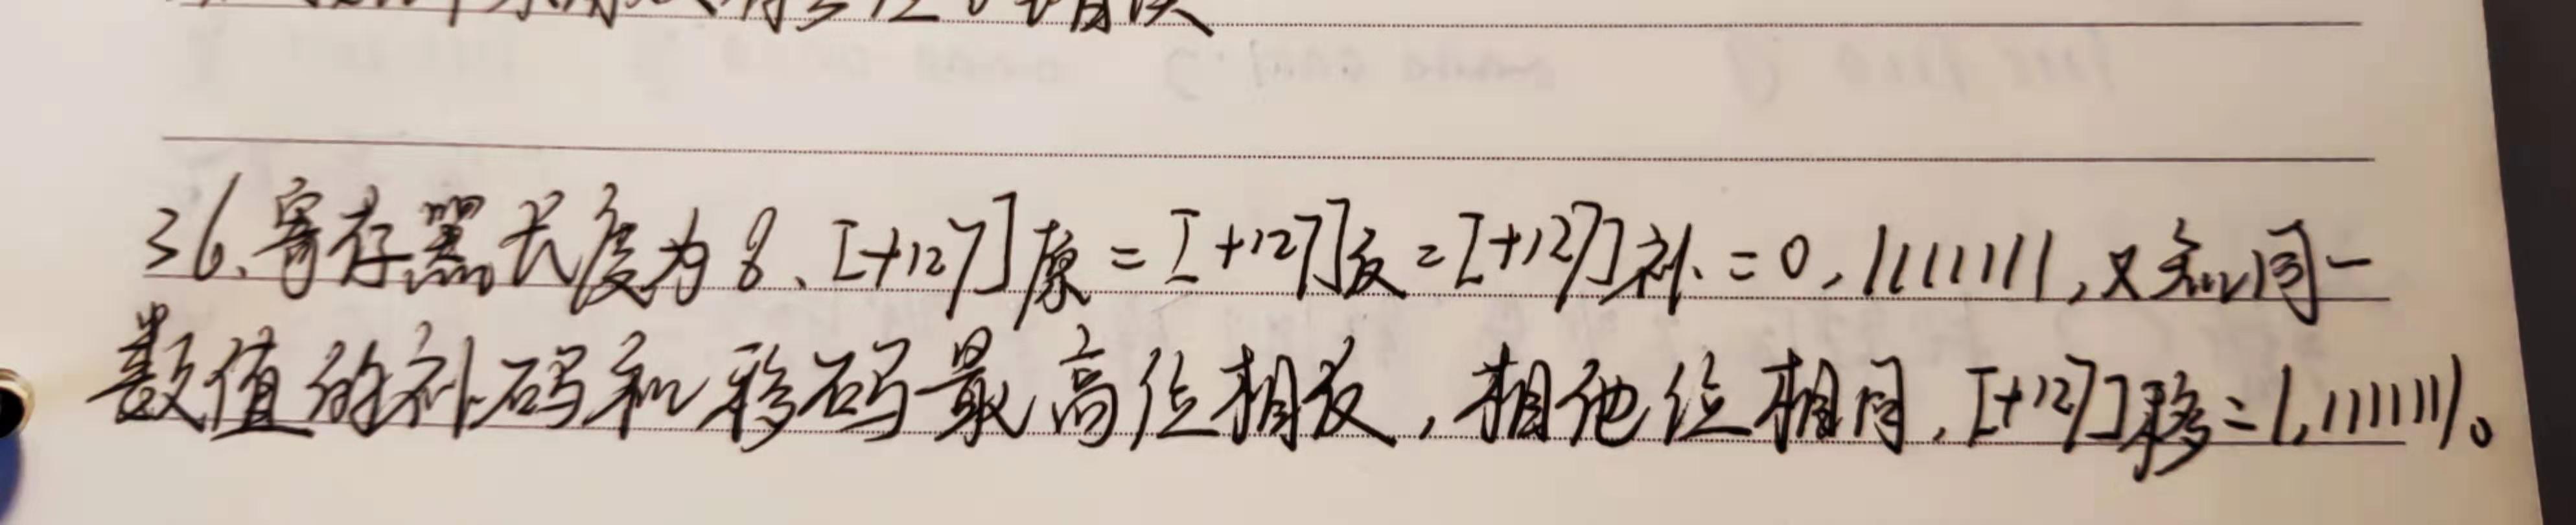 36、寄存器长度为8、[+127]原=[+127]反=[+127]补=0,1111111,又知同一
数值的补码和移码最高位相反,相他位相同,[+127]移=1,1111111。